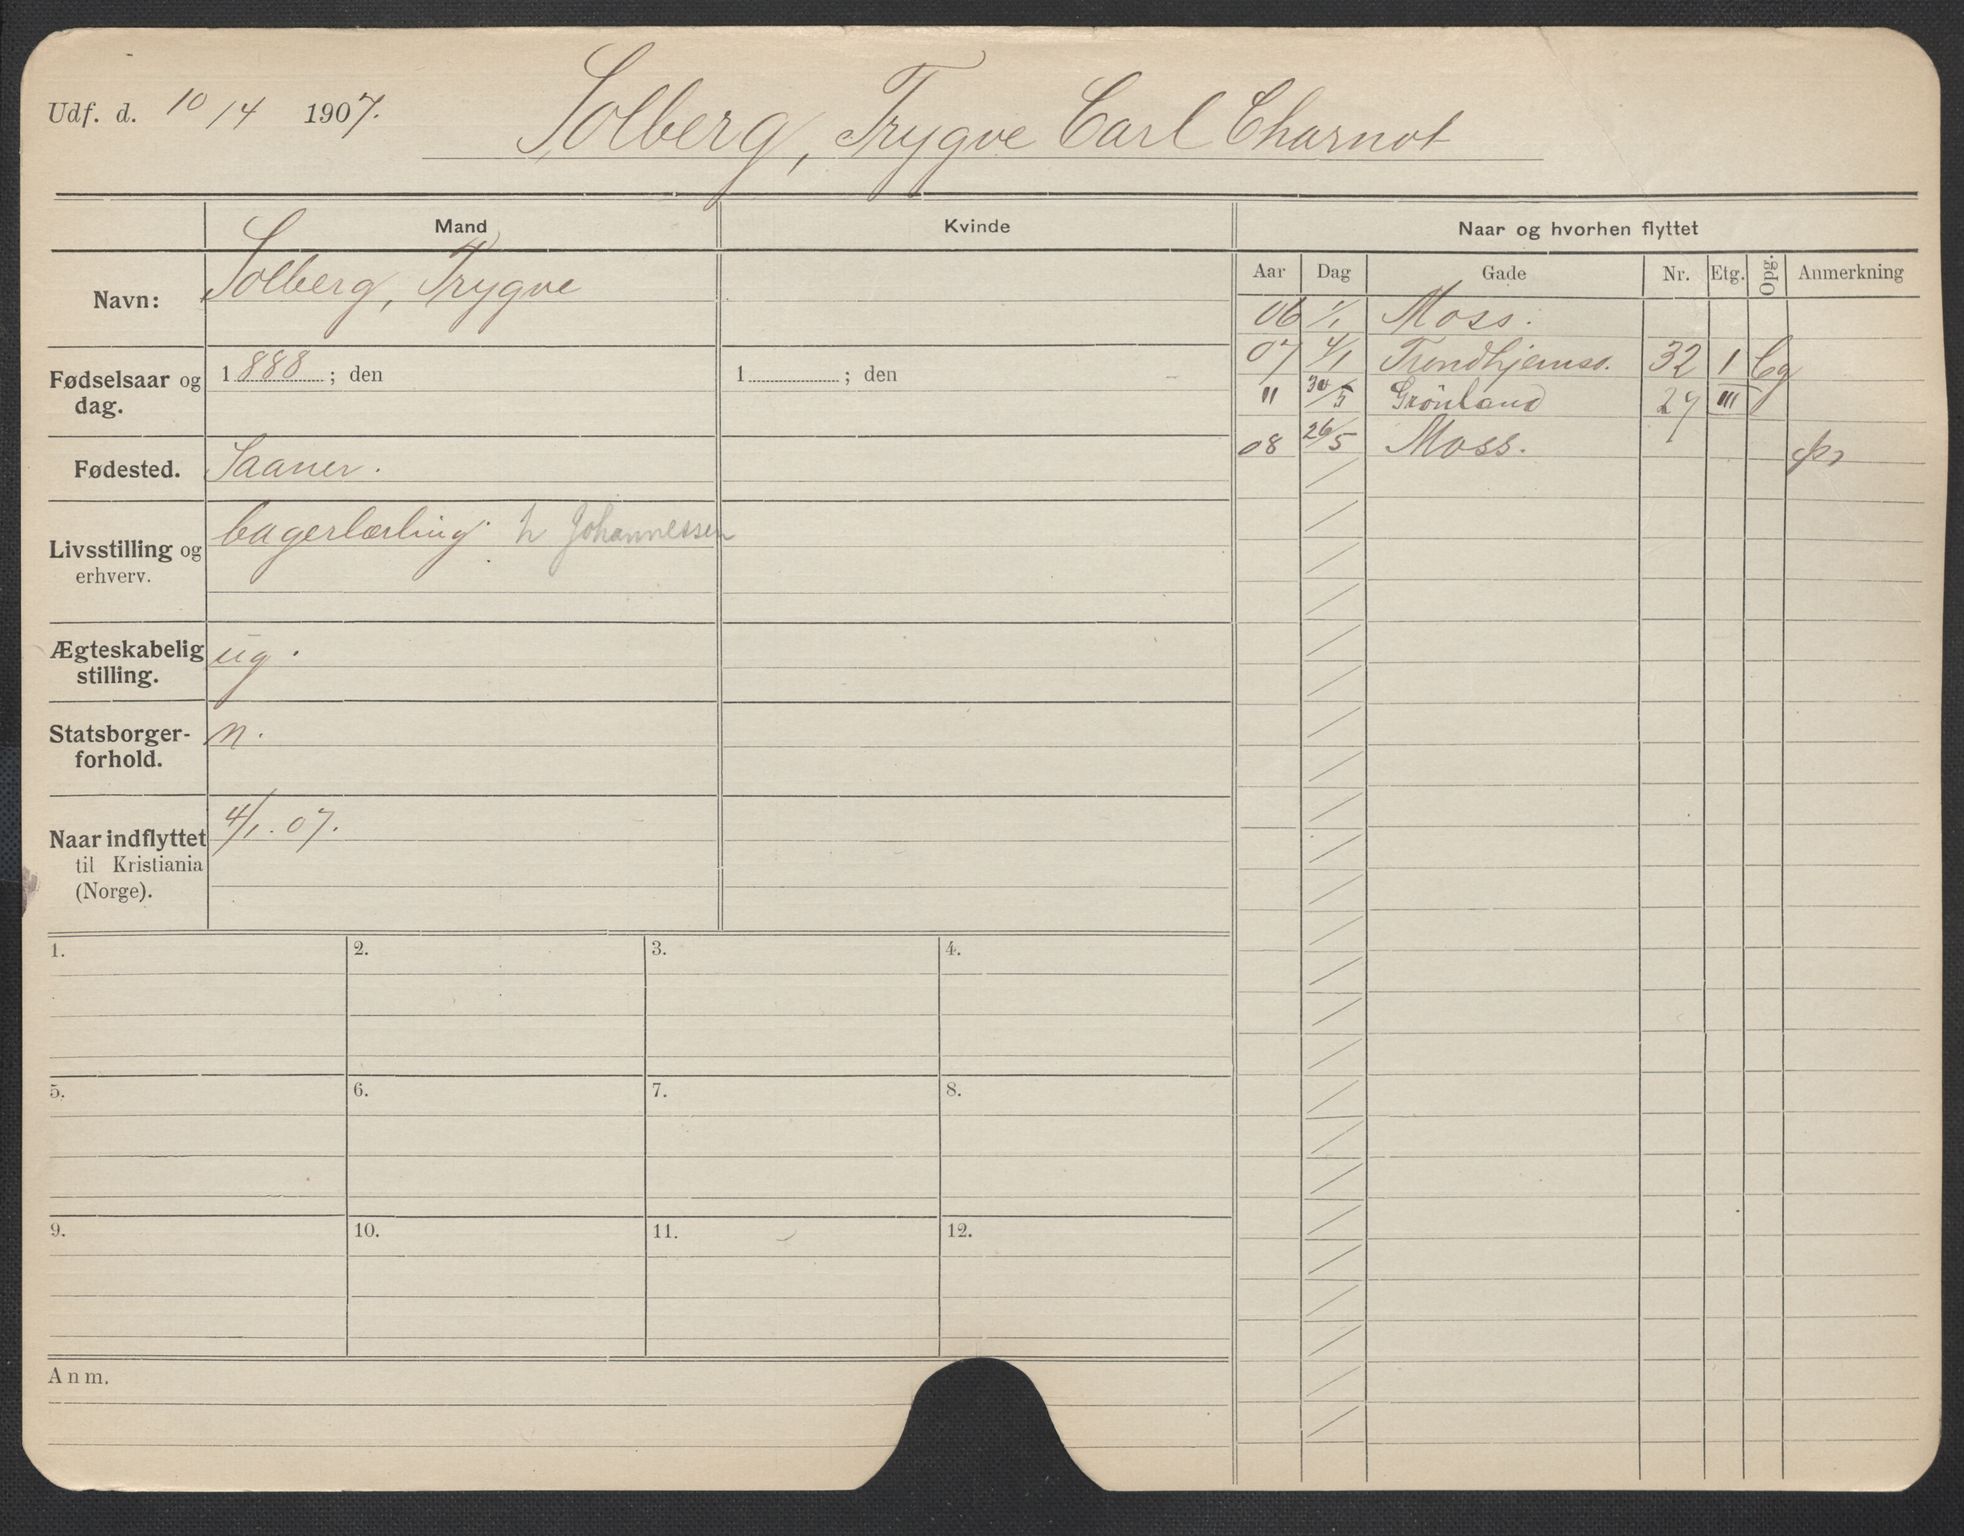 Udf. d. 10/4 1907. Solberg, Trygve Carl Charnot
Mand Kvinde Naar og hvorhen flyttet
Navn: Solberg, Trygve
Fødselsaar og dag. 1888 ; den 1 ; den
Fødested. Saaner.
Livsstilling og erhverv. bagerlærling h Johannessen
Ægteskabelig stilling. ug.
Statsborger-forhold. n.
Naar indflyttet til Kristiania (Norge). 4/1. 07.
Aar Dag Gade Nr. Etg. Opg. Anmerkning
06 1/1 Moss.
07 4/1 Trondhjemsv. 32 I Cg
" 30/5 Grönland 27 III
08 26/5 Moss.
1. 2. 3. 4.
5. 6. 7. 8.
9. 10. 11. 12.
Anm.